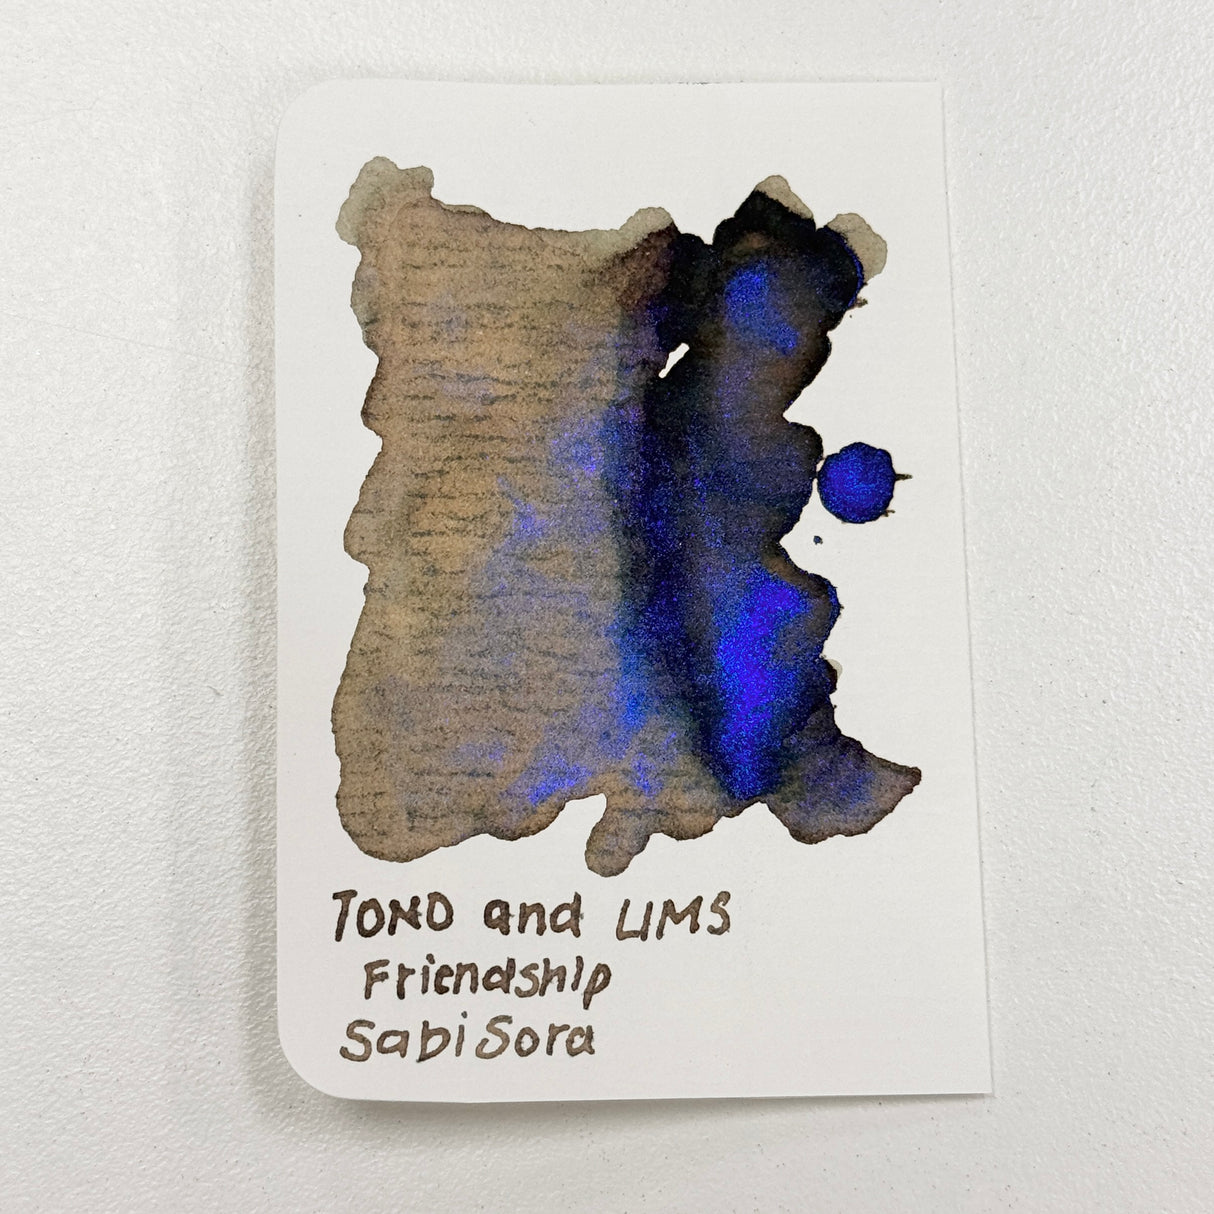 TOND and LIMS
Friendship
Sabi Sora